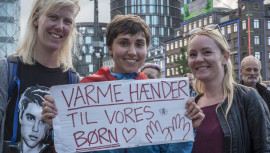 VARME HÆNDER
TIL VORES
BØRN